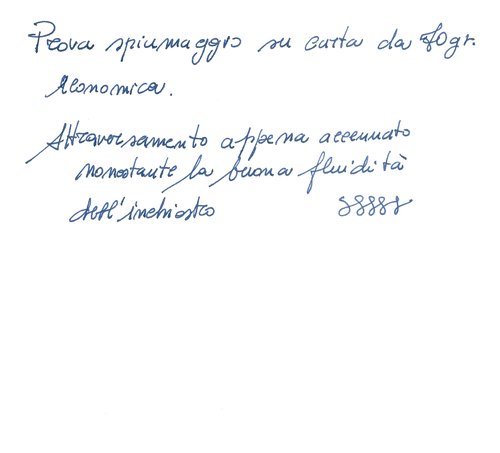 Prova spiumaggio su carta da 70gr.
economica.
Attraversamento appena accennato
nonostante la buona fluidità
dell'inchiostro